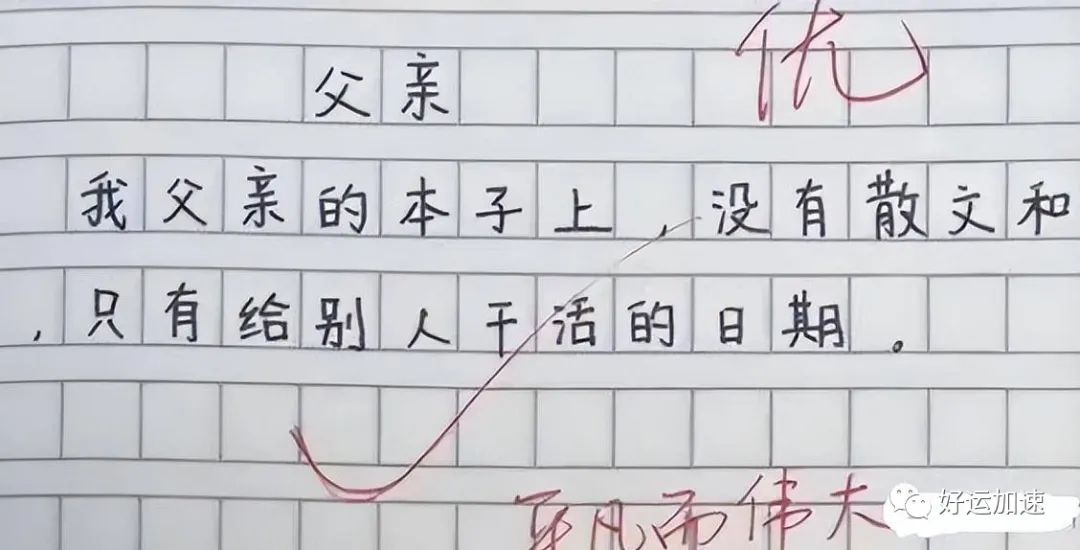 优
父亲
我父亲的本子上，没有散文和
，只有给别人干活的日期。
平凡而伟大
好运加速